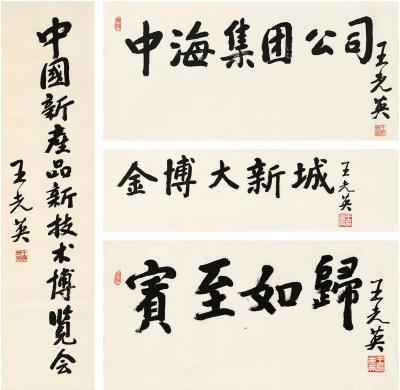 中國新產品新技术博览会
王光英
中海集团公司
王光英
金博大新城
王光英
賓至如歸
王光英